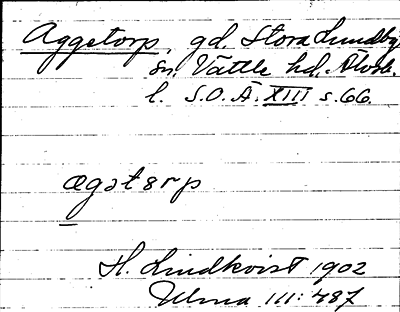 Aggetorp, gd. Stora Lundby
sn. Vättle hd. Älvsb.
l. S.O.Ä. XIII s. 66.
ægstɜrp
H. Lindkvist 1902
Ulma 111:487